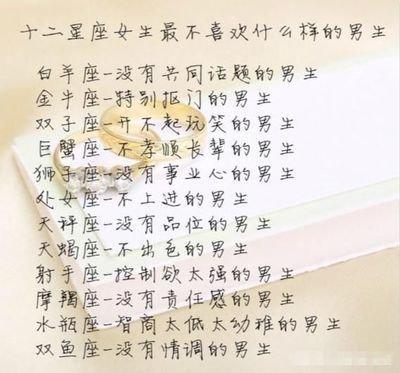 十二星座女生最不喜欢什么样的男生
白羊座-没有共同话题的男生
金牛座-特别抠门的男生
双子座-开不起玩笑的男生
巨蟹座-不孝顺长辈的男生
狮子座-没有事业心的男生
处女座-不上进的男生
天秤座-没有品位的男生
天蝎座-不出色的男生
射手座-控制欲太强的男生
摩羯座-没有责任感的男生
水瓶座-智商太低太幼稚的男生
双鱼座-没有情调的男生